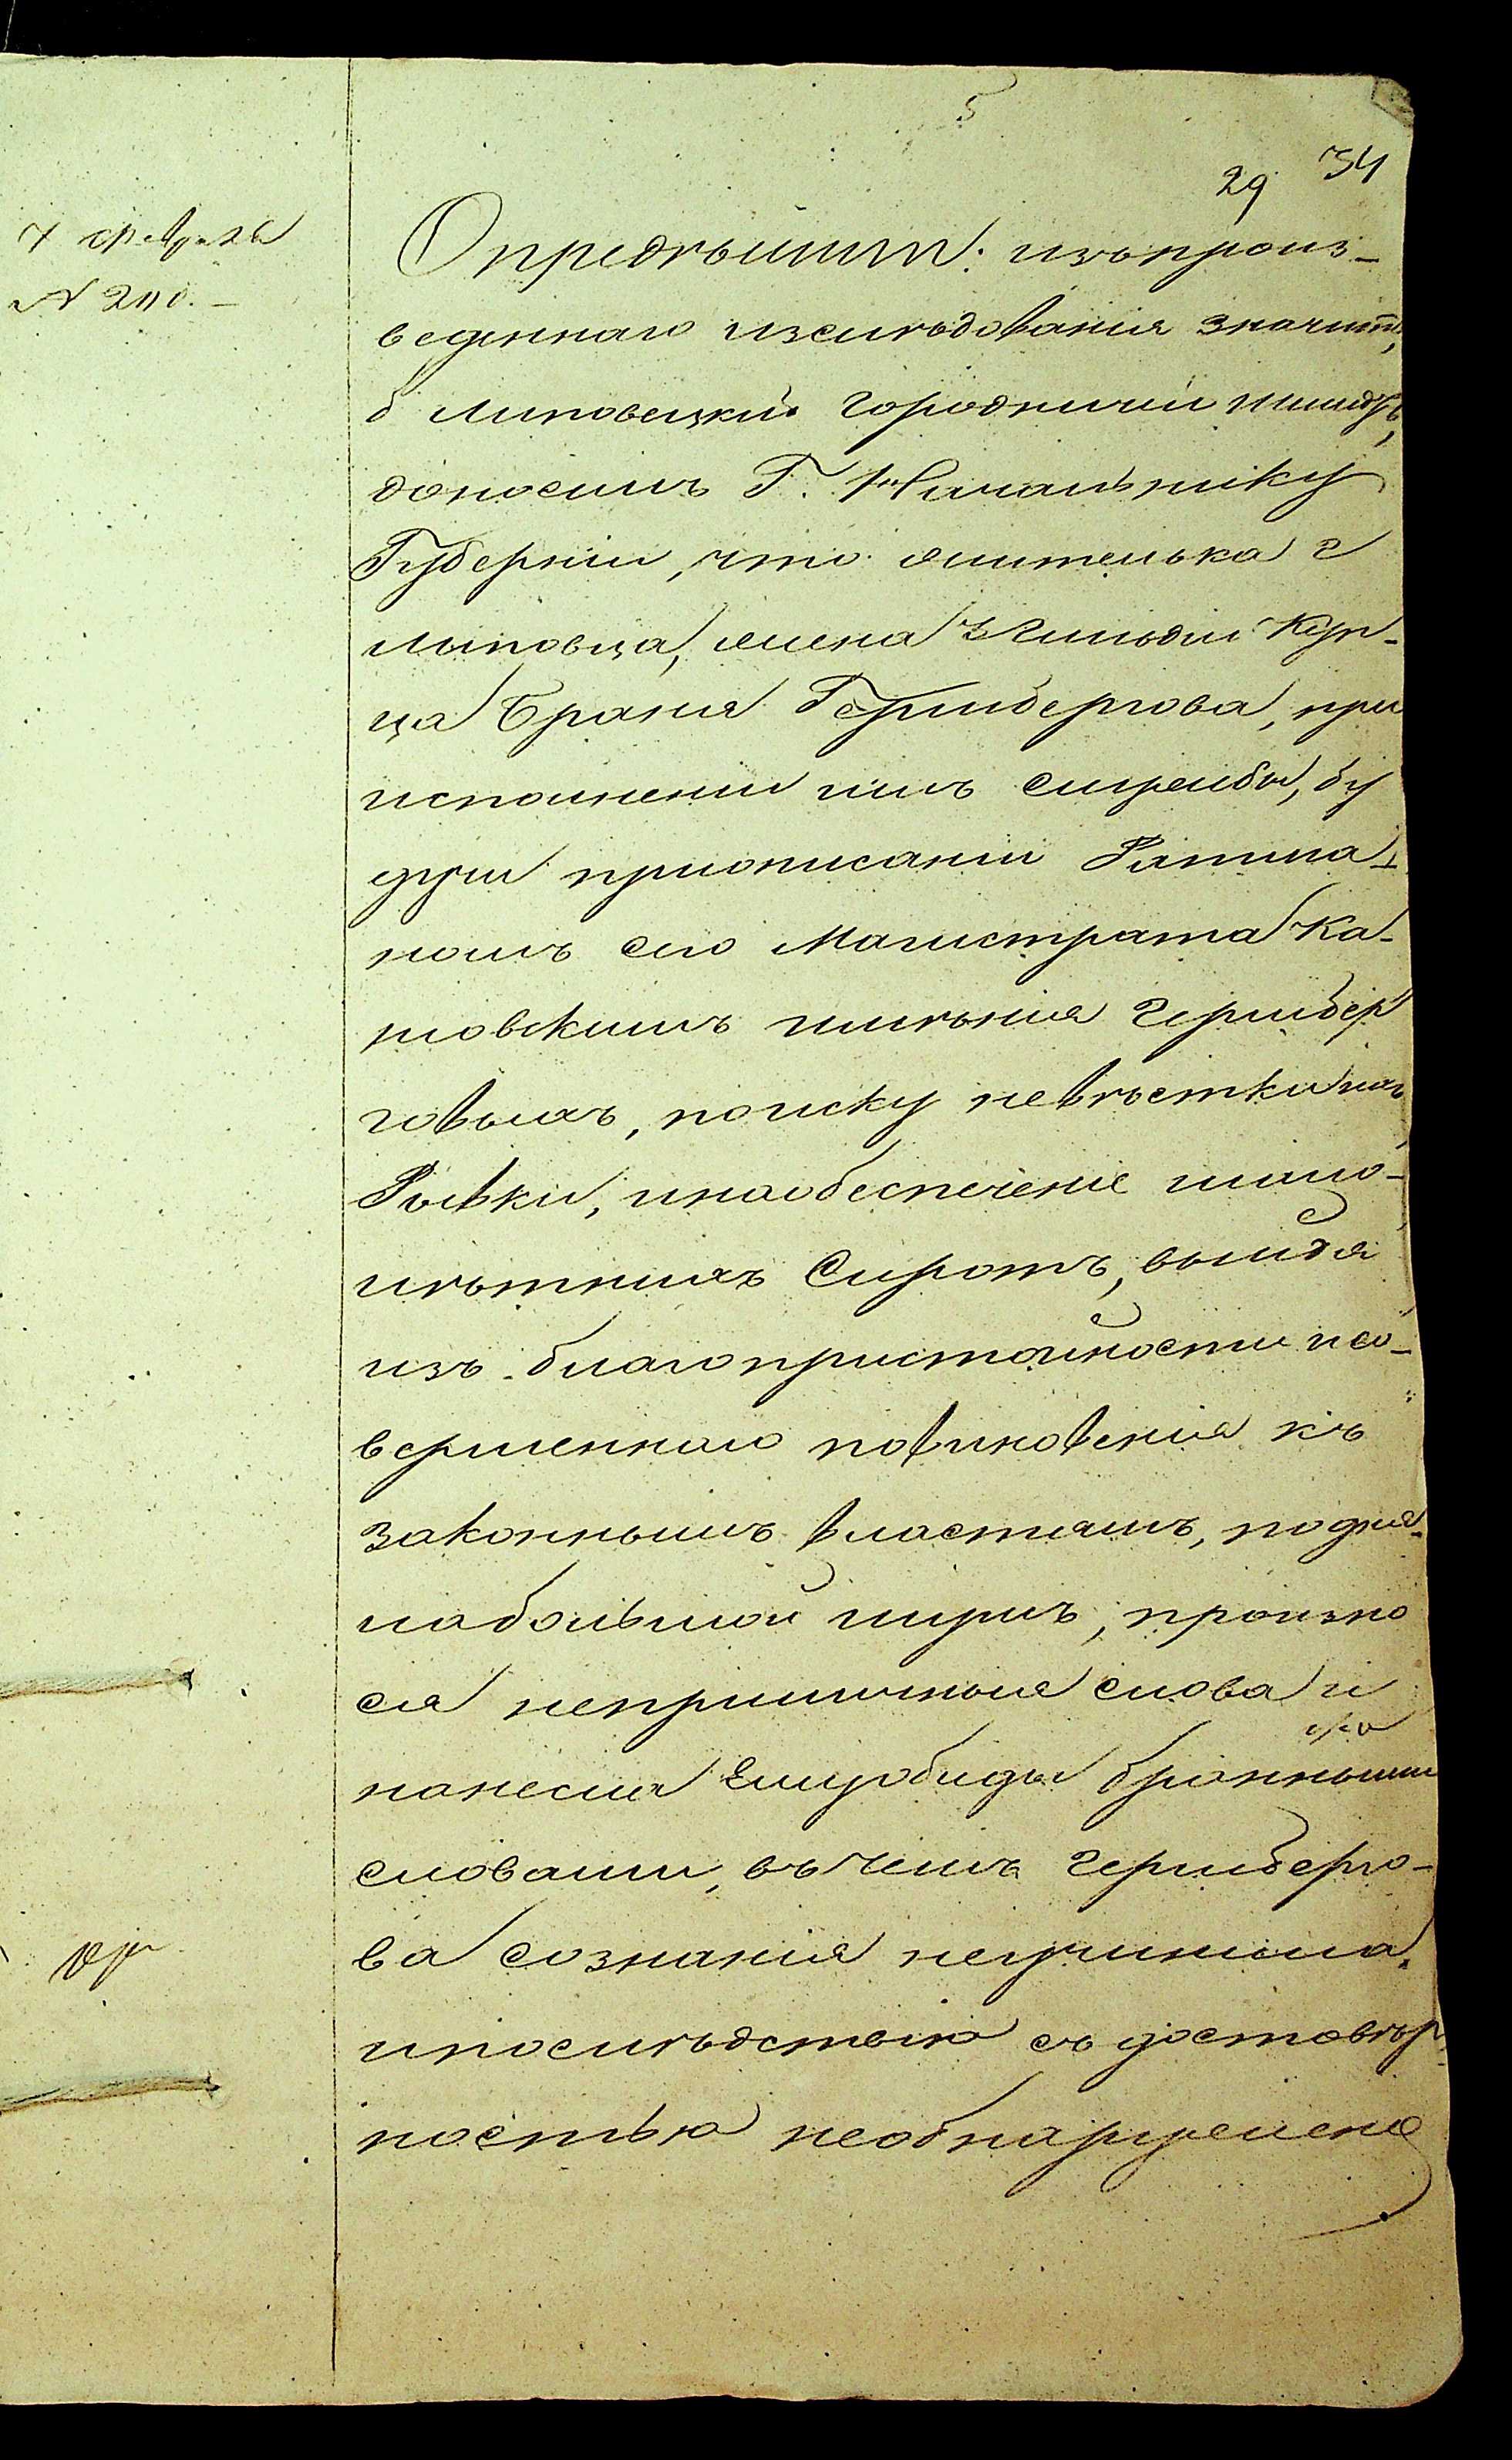 5
29 34
7 февраля
№ 200. –
Определили: изъ произ-
веденнаго изслѣдованія значитъ,
б Липовецкій Городничій
доносилъ Г. Начальнику
Губерніи, что жителька г
Липовца, жена 3 Гильдіи Куп-
ца Браня Геринбергова, при
исполненіи имъ службы, бу
дучи приописаніи Ратма-
номъ сего Магистрата Ка-
новскимъ имѣнія Геринбер
говыхъ, поиску невѣстки ихъ
Рывки, инаобеспеченіе мало-
лѣтнихъ Сиротъ, выйдя
изъ благопристойности и со-
вершеннаго повиновенія къ
законнымъ властямъ, подня-
лабольшой шумъ, произно
ся неприличныя слова и
нанесла Емуобиды бранными
словами, въ чемъ Геринберго-
ва сознанія неучинила,
ипослѣдствію съ достовѣр
ностью необнаружено